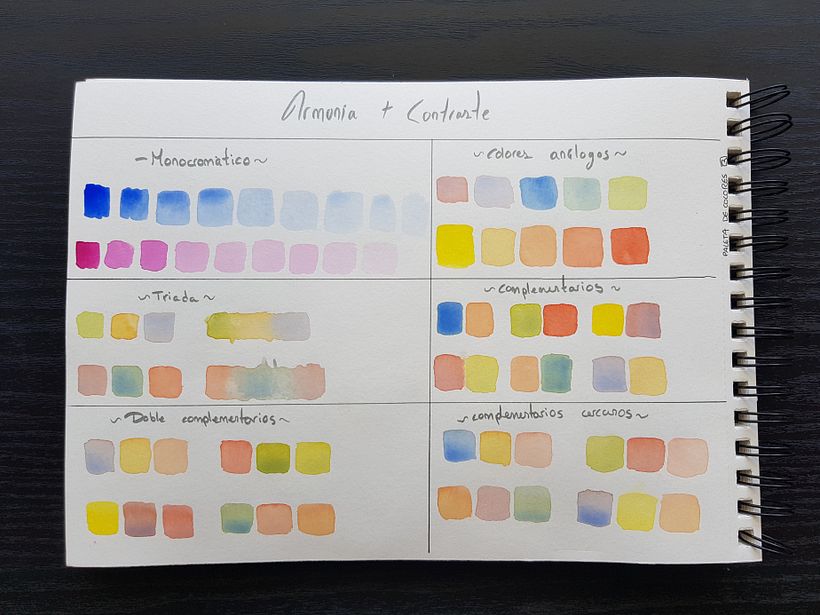 Armonía + Contraste
- Monocromático ~
~ colores análogos ~
~ Triada ~
~ complementarios ~
~ Doble complementarios ~
~ complementarios cercanos ~
PALETA DE COLORES